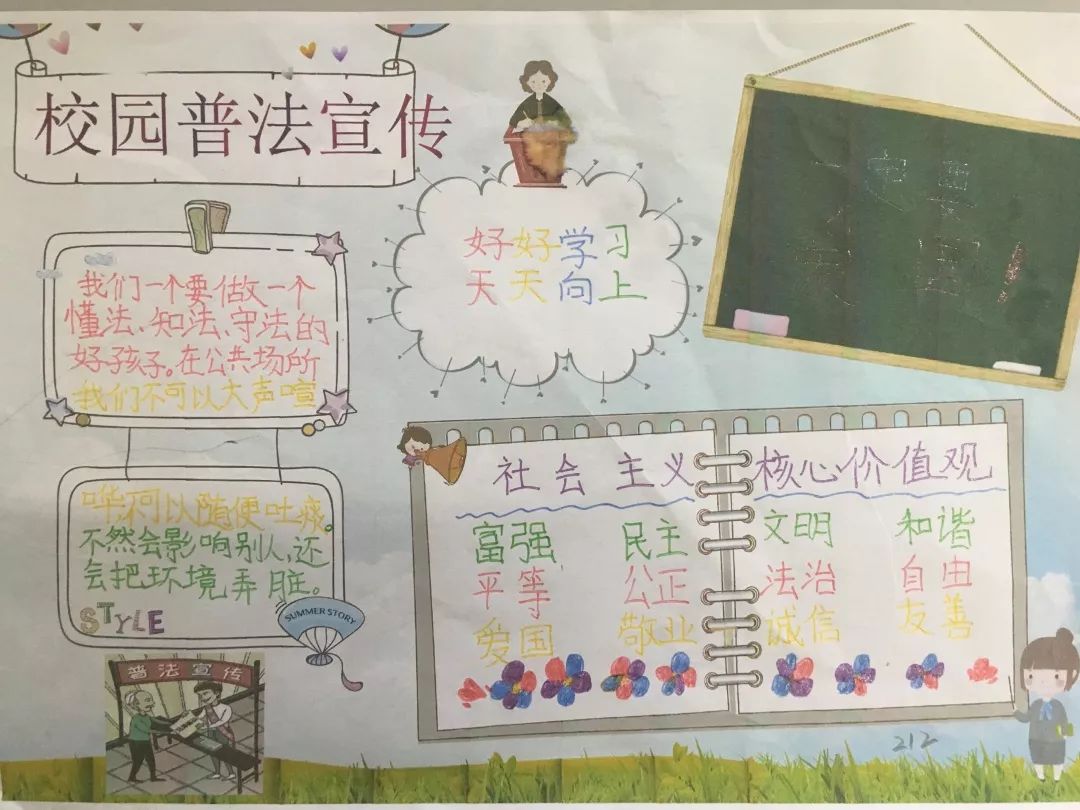 校园普法宣传
好好学习
天天向上
我们一个要做一个
懂法、知法、守法的
好孩子。在公共场所
我们不可以大声喧
哗不可以随便吐痰。
不然会影响别人,还
会把环境弄脏。
STYLE
SUMMER STORY
普法宣传
社会主义核心价值观
富强 民主 文明 和谐
平等 公正 法治 自由
爱国 敬业 诚信 友善
212